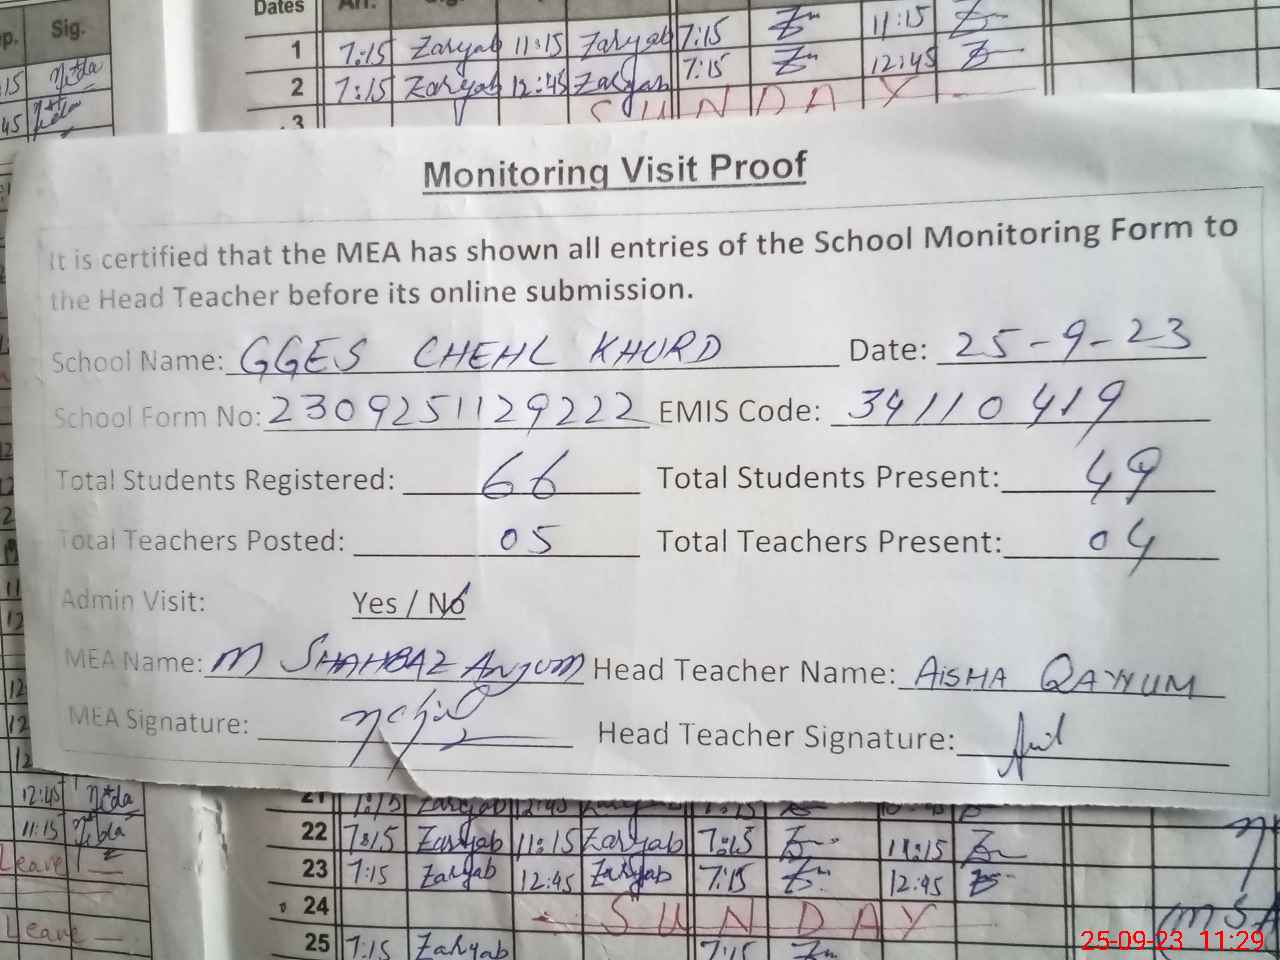 p. Sig. Dates Arr. Sig.
1 7:15 Zaryab 11:15 Zaryab 7:15 11:15
:15 Nida 2 7:15 Zaryab 12:45 Zaryab 7:15 12:45
:45 Nida 3 SUNDAY
Monitoring Visit Proof
It is certified that the MEA has shown all entries of the School Monitoring Form to
the Head Teacher before its online submission.
School Name: GGES CHEHL KHURD Date: 25-9-23
School Form No: 2309251129222 EMIS Code: 34110419
Total Students Registered: 66 Total Students Present: 49
Total Teachers Posted: 05 Total Teachers Present: 04
Admin Visit: Yes / No
MEA Name: M SHAHBAZ ANJUM Head Teacher Name: AISHA QAYYUM
MEA Signature: Head Teacher Signature:
12:45 Nida 21 7:15 Zaryab 12:45 Zaryab 7:15
11:15 Nida 22 7:15 Zaryab 11:15 Zaryab 7:15 11:15
Leave 23 7:15 Zaryab 12:45 Zaryab 7:15 12:45
24 SUNDAY
Leave 25 7:15 Zaryab 7:15
25-09-23 11:29